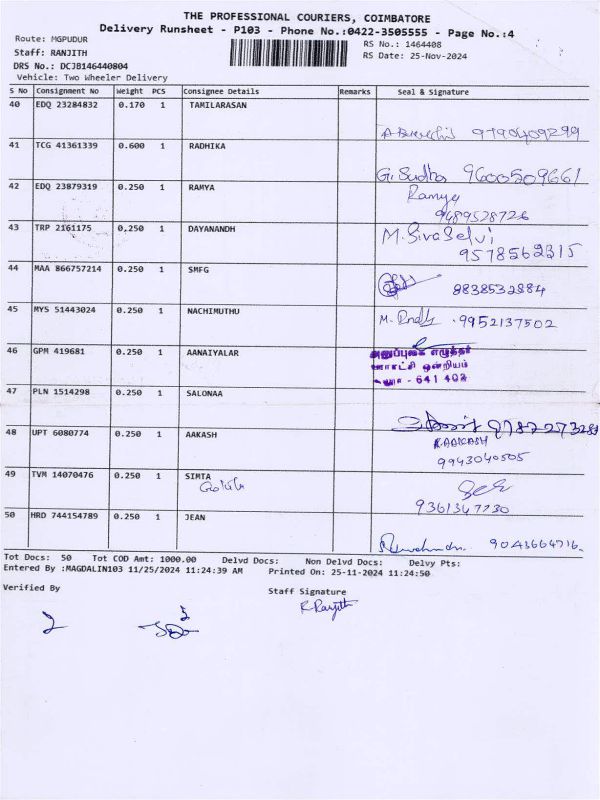 THE PROFESSIONAL COURIERS, COIMBATORE
Delivery Runsheet - P103 - Phone No.:0422-3505555 - Page No.:4
Route: MGPUDUR
RS No.: 1464408
Staff: RANJITH
RS Date: 25-Nov-2024
DRS No.: DCJB146440804
Vehicle: Two Wheeler Delivery
S No Consignment No Weight PCS Consignee Details Remarks Seal & Signature
40 EDQ 23284832 0.170 1 TAMILARASAN
9790409299
41 TCG 41361339 0.600 1 RADHIKA
G. Sudha 9600509661
42 EDQ 23879319 0.250 1 RAMYA
Ramya
9489528726
43 TRP 2161175 0,250 1 DAYANANDH
M. Siva Selvi
9578562315
44 MAA 866757214 0.250 1 SMFG
8838532884
45 MYS 51443024 0.250 1 NACHIMUTHU
M. 9952137502
46 GPM 419681 0.250 1 AANAIYALAR
அனுப்புகை எழுத்தர்
ஊராட்சி ஒன்றியம்
- 641 402
47 PLN 1514298 0.250 1 SALONAA
48 UPT 6080774 0.250 1 AAKASH
R.AAKASH
9943040505
49 TVM 14070476 0.250 1 SIMTA
9361347230
50 HRD 744154789 0.250 1 JEAN
9043664716.
Tot Docs: 50 Tot COD Amt: 1000.00 Delvd Docs: Non Delvd Docs: Delvy Pts:
Entered By :MAGDALIN103 11/25/2024 11:24:39 AM Printed On: 25-11-2024 11:24:50
Verified By
Staff Signature
R. Ranjith